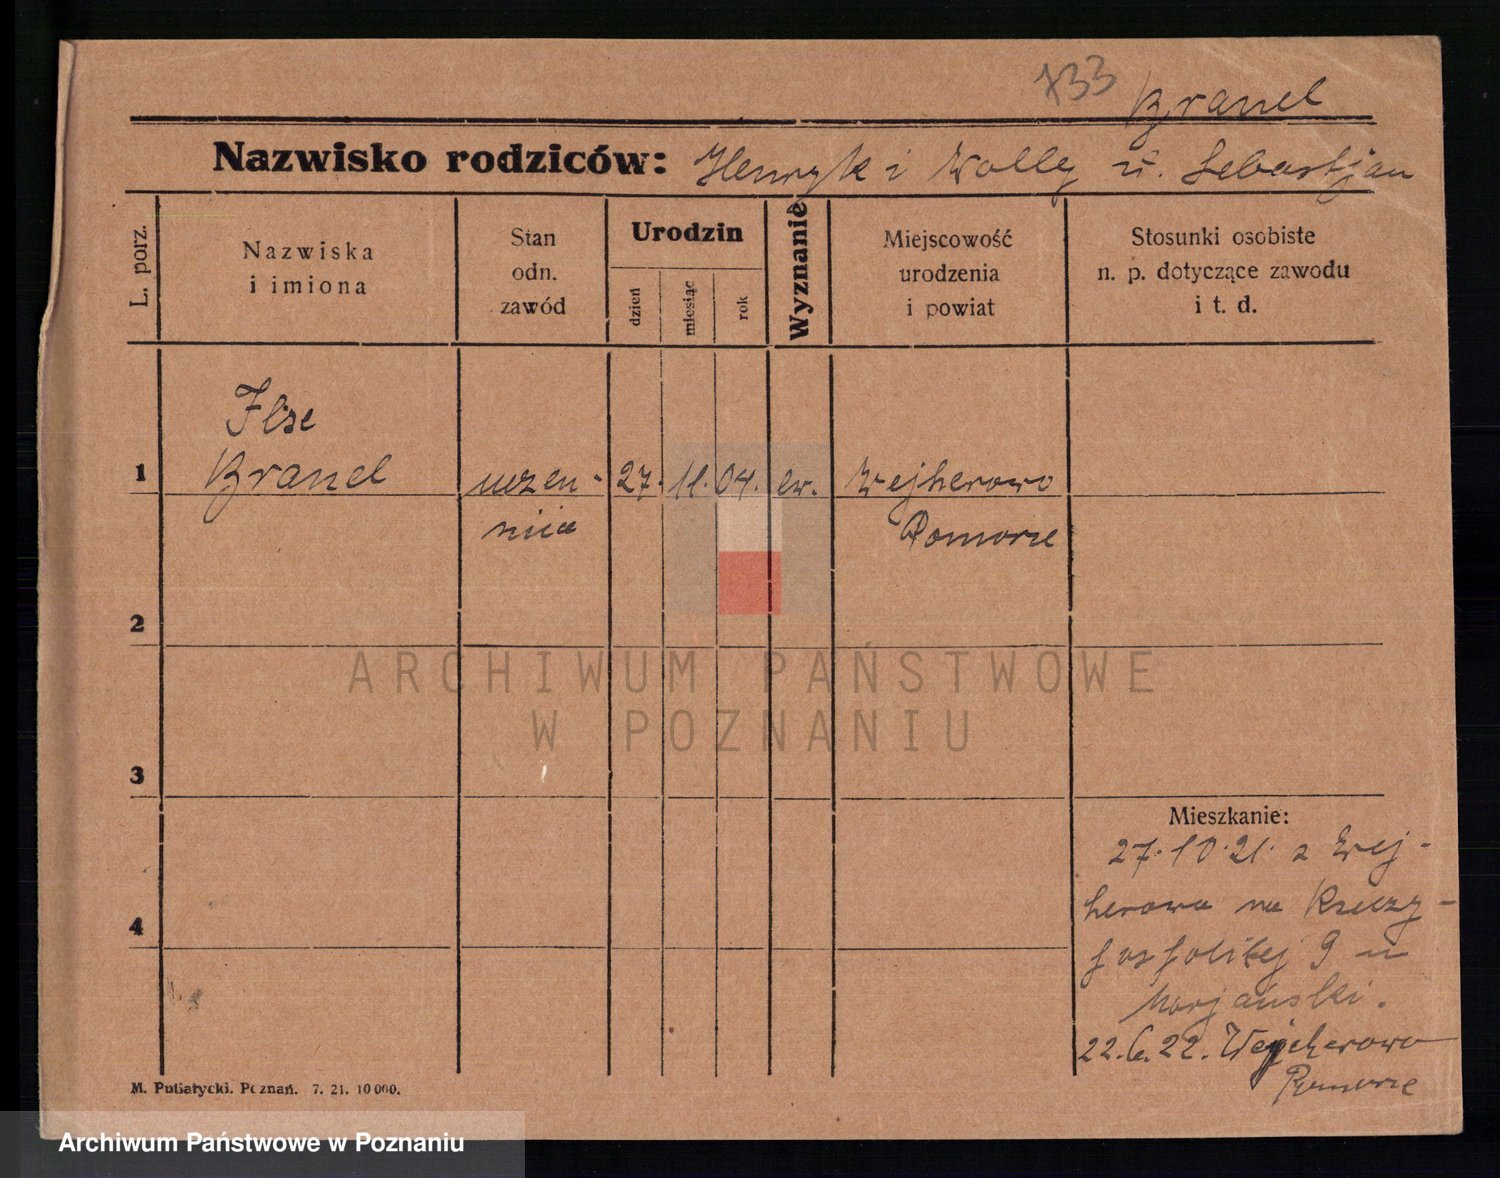 733 Branel
Nazwisko rodziców: Henryk i Wally u. Sebastjan
L. porz.
Nazwiska
i imiona
Stan
odn.
zawód
Urodzin
dzień
miesiąc
rok
Wyznanie
Miejscowość
urodzenia
i powiat
Stosunki osobiste
n. p. dotyczące zawodu
i t. d.
Ilse
1 Branel uczen- 27. 11. 04. ew. Wejherowo
nica Pomorze
2
3
4
Mieszkanie:
27.10.21. z Wej-
herowa na Rzeczy-
pospolitej 9 u
Marjański.
22.6.22. Wejherowo
Pomorze
M. Putiatycki. Poznań. 7. 21. 10 000.
ARCHIWUM PAŃSTWOWE
W POZNANIU
Archiwum Państwowe w Poznaniu